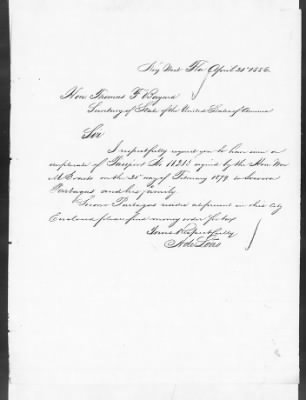 Key West Fla April 21st 1886.
Hon. Thomas F. Bayard
Secretary of State of the United States of America
Sir
I respectfully request you to have me a
duplicate of Passport No 11213 signed by the Hon. Wm
M. Evarts on the 21st day of February 1879 to
Partagas, and his family
Partagas resides at present in this City
Enclosed please find money order for
Yours Respectfully